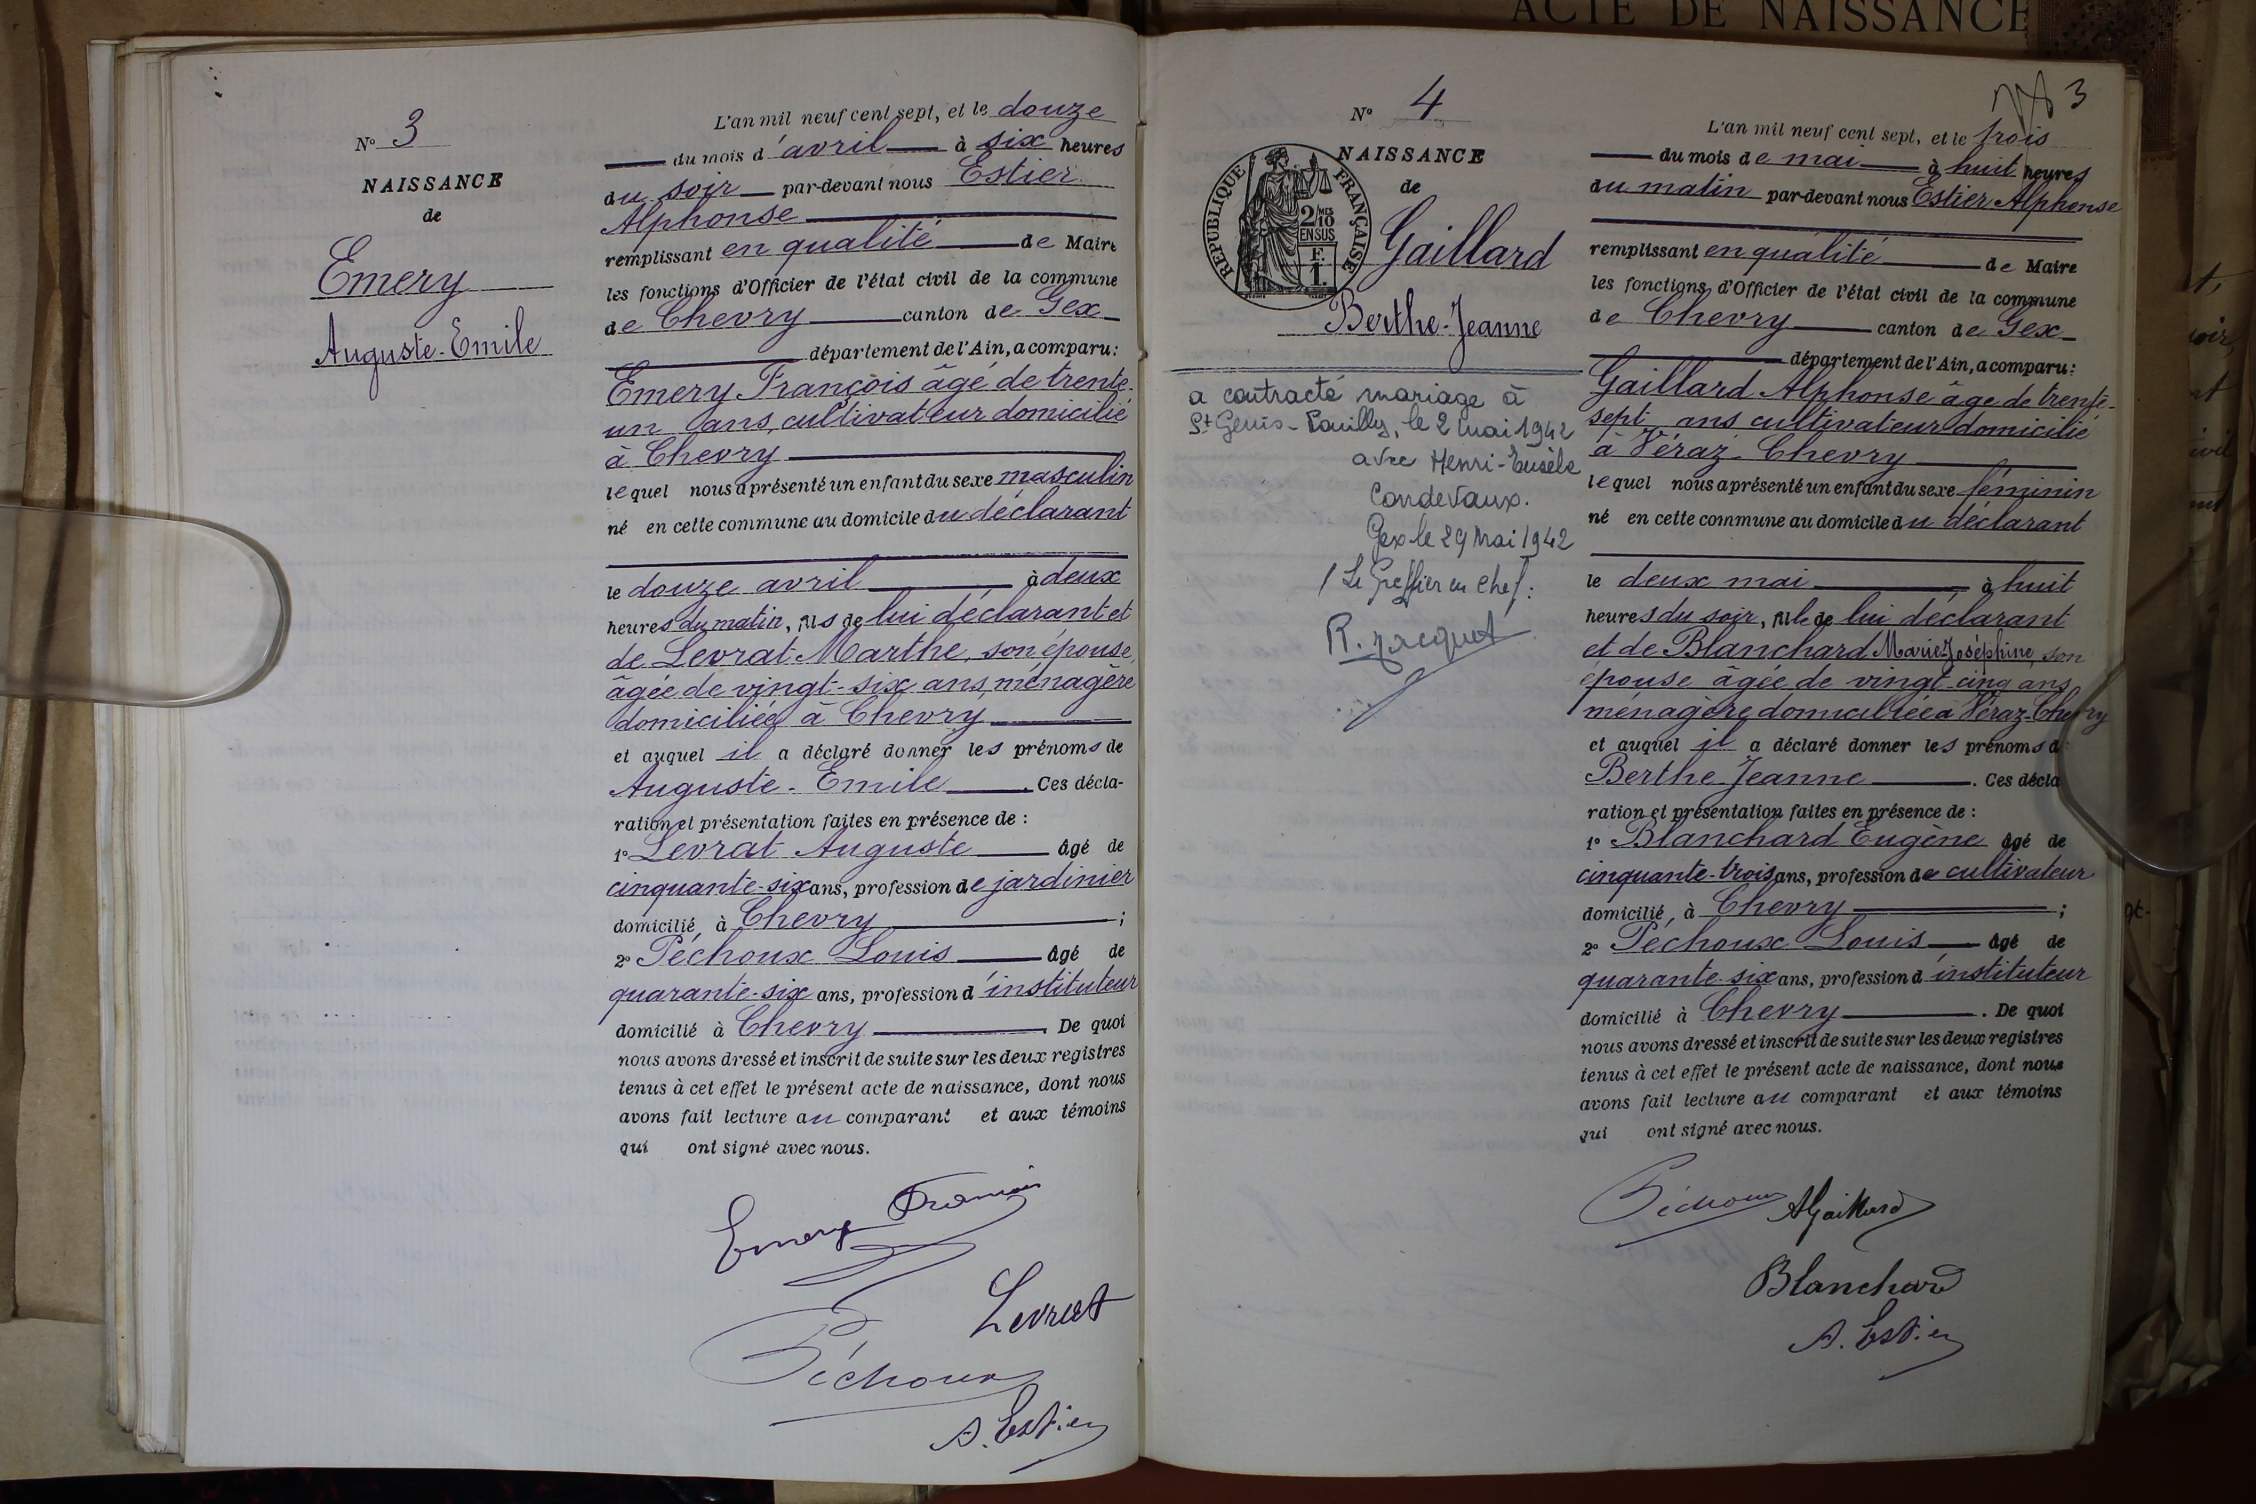 ACTE DE NAISSANCE
N° 3
NAISSANCE
de
Emery
Auguste-Emile
L'an mil neuf cent sept, et le douze
du mois d'avril à six heures
du soir par-devant nous Estier
Alphonse
remplissant en qualité de Maire
les fonctions d'Officier de l'état civil de la commune
de Chevry canton de Gex
département de l'Ain, a comparu :
Emery François âgé de trente-
un ans, cultivateur domicilié
à Chevry
lequel nous a présenté un enfant du sexe masculin
né en cette commune au domicile du déclarant
le douze avril à deux
heures du matin, fils de lui déclarant et
de Levrat Marthe, son épouse,
âgée de vingt-six ans, ménagère
domiciliée à Chevry
et auquel il a déclaré donner les prénoms de
Auguste-Emile. Ces décla-
ration et présentation faites en présence de :
1° Levrat Auguste âgé de
cinquante-six ans, profession de jardinier
domicilié à Chevry ;
2° Péchoux Louis âgé de
quarante-six ans, profession d'instituteur
domicilié à Chevry. De quoi
nous avons dressé et inscrit de suite sur les deux registres
tenus à cet effet le présent acte de naissance, dont nous
avons fait lecture au comparant et aux témoins
qui ont signé avec nous.
Emery François
Levrat
Péchoux
A. Estier
3
N° 4
NAISSANCE
de
RÉPUBLIQUE FRANÇAISE
2/10 MES
EN SUS
F.
1.
Gaillard
Berthe-Jeanne
a contracté mariage à
St Genis-Pouilly, le 2 mai 1942
avec Henri-Eusèbe
Condevaux.
Gex le 29 Mai 1942
/ Le Greffier en chef :
R. Jacquet
L'an mil neuf cent sept, et le trois
du mois de mai à huit heures
du matin par-devant nous Estier Alphonse
remplissant en qualité de Maire
les fonctions d'Officier de l'état civil de la commune
de Chevry canton de Gex
département de l'Ain, a comparu :
Gaillard Alphonse âge de trente-
sept ans cultivateur domicilié
à Véraz-Chevry
lequel nous a présenté un enfant du sexe féminin
né en cette commune au domicile du déclarant
le deux mai à huit
heures du soir, fille de lui déclarant
et de Blanchard Marie-Joséphine, son
épouse âgée de vingt-cinq ans
ménagère domiciliée à Véraz-Chevry
et auquel il a déclaré donner les prénoms d
Berthe Jeanne. Ces décla
ration et présentation faites en présence de :
1° Blanchard Eugène âgé de
cinquante-trois ans, profession de cultivateur
domicilié à Chevry ;
2° Péchoux Louis âgé de
quarante-six ans, profession d'instituteur
domicilié à Chevry. De quoi
nous avons dressé et inscrit de suite sur les deux registres
tenus à cet effet le présent acte de naissance, dont nous
avons fait lecture au comparant et aux témoins
qui ont signé avec nous.
Péchoux AGaillard
Blanchard
A. Estier